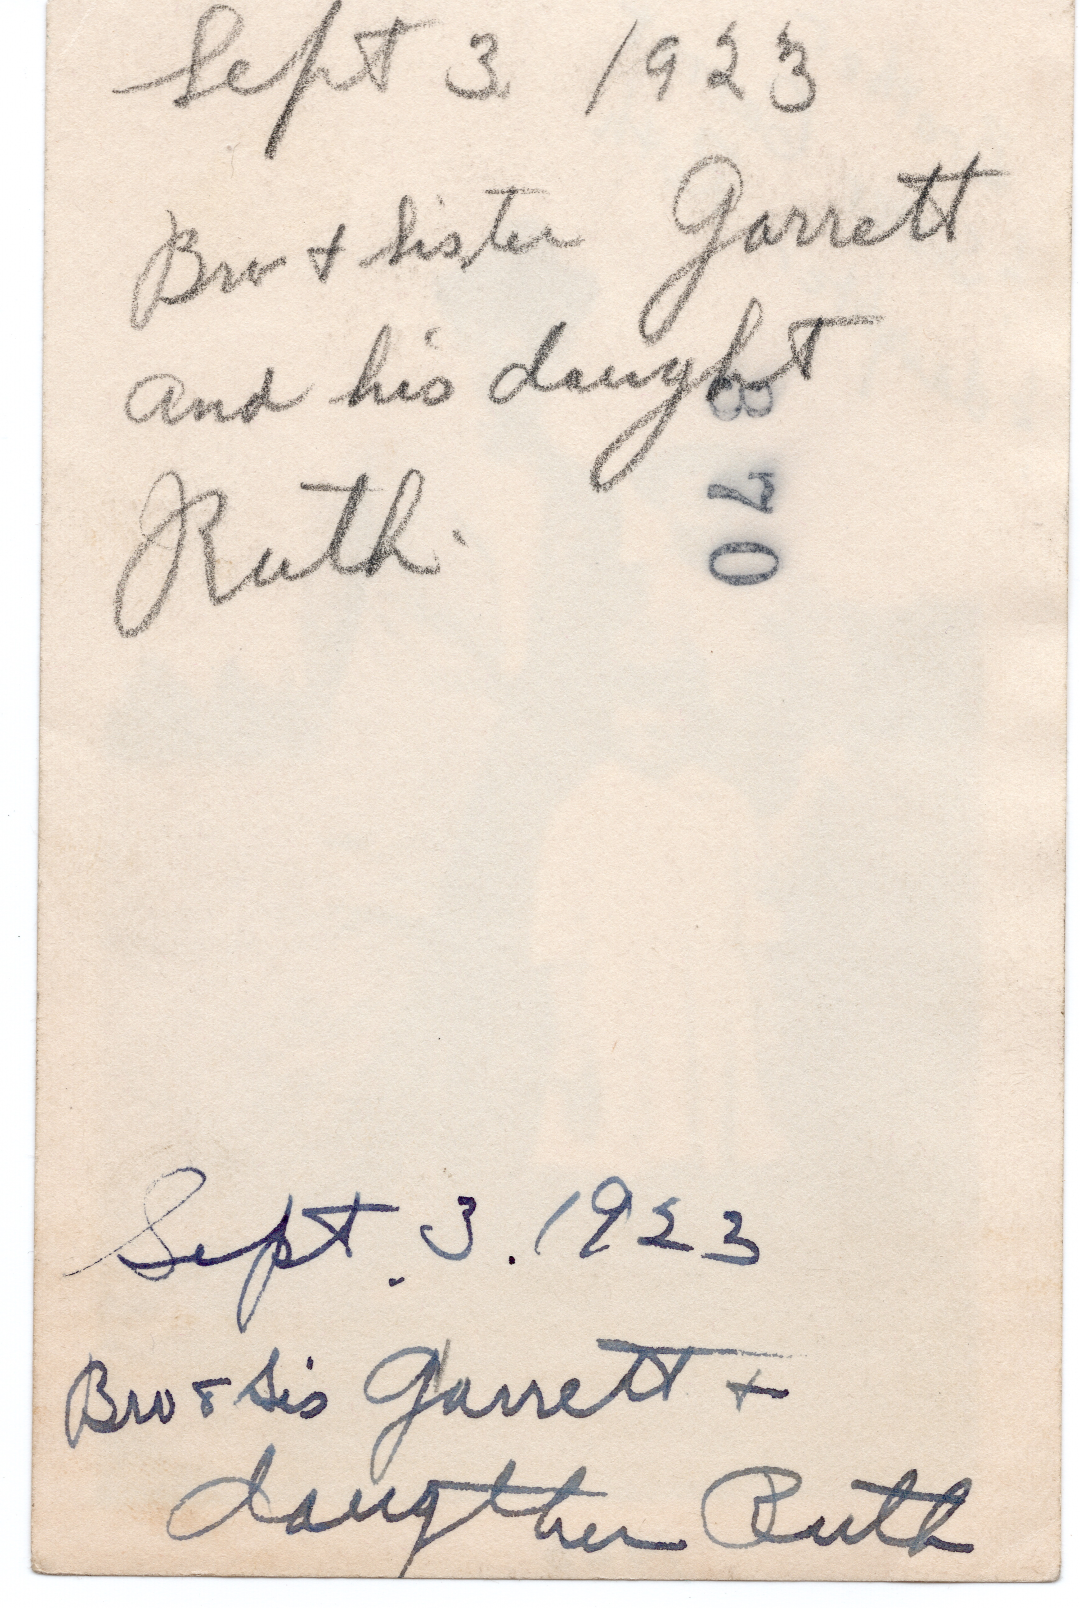 Sept 3 1923
Bro + Sister Garrett
and his daught
Ruth.
870
Sept. 3. 1923
Bro & Sis Garrett +
daugther Ruth